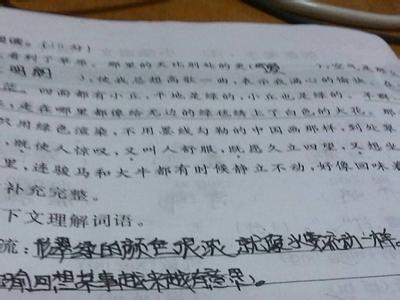 阅读。(10分)
看到了草原。那里的天比别处的更( ),空气是那么
明朗 ),使我总想高歌一曲,表示我满心的愉快。在
茫。四面都有小丘,平地是绿的,小丘也是绿的。羊群
,走在哪里都像给无边的绿毯绣上了白色的大花。那
只用绿色渲染,不用墨线勾勒的中国画那样,到处翠
,既使人惊叹,又叫人舒服,既愿久立四望,又想坐
里,连骏马和大牛都有时候静立不动,好像回味着
补充完整。
下文理解词语。
流:形翠绿的颜色很浓,就像水要流动一样。
回想某事越来越有意思)。